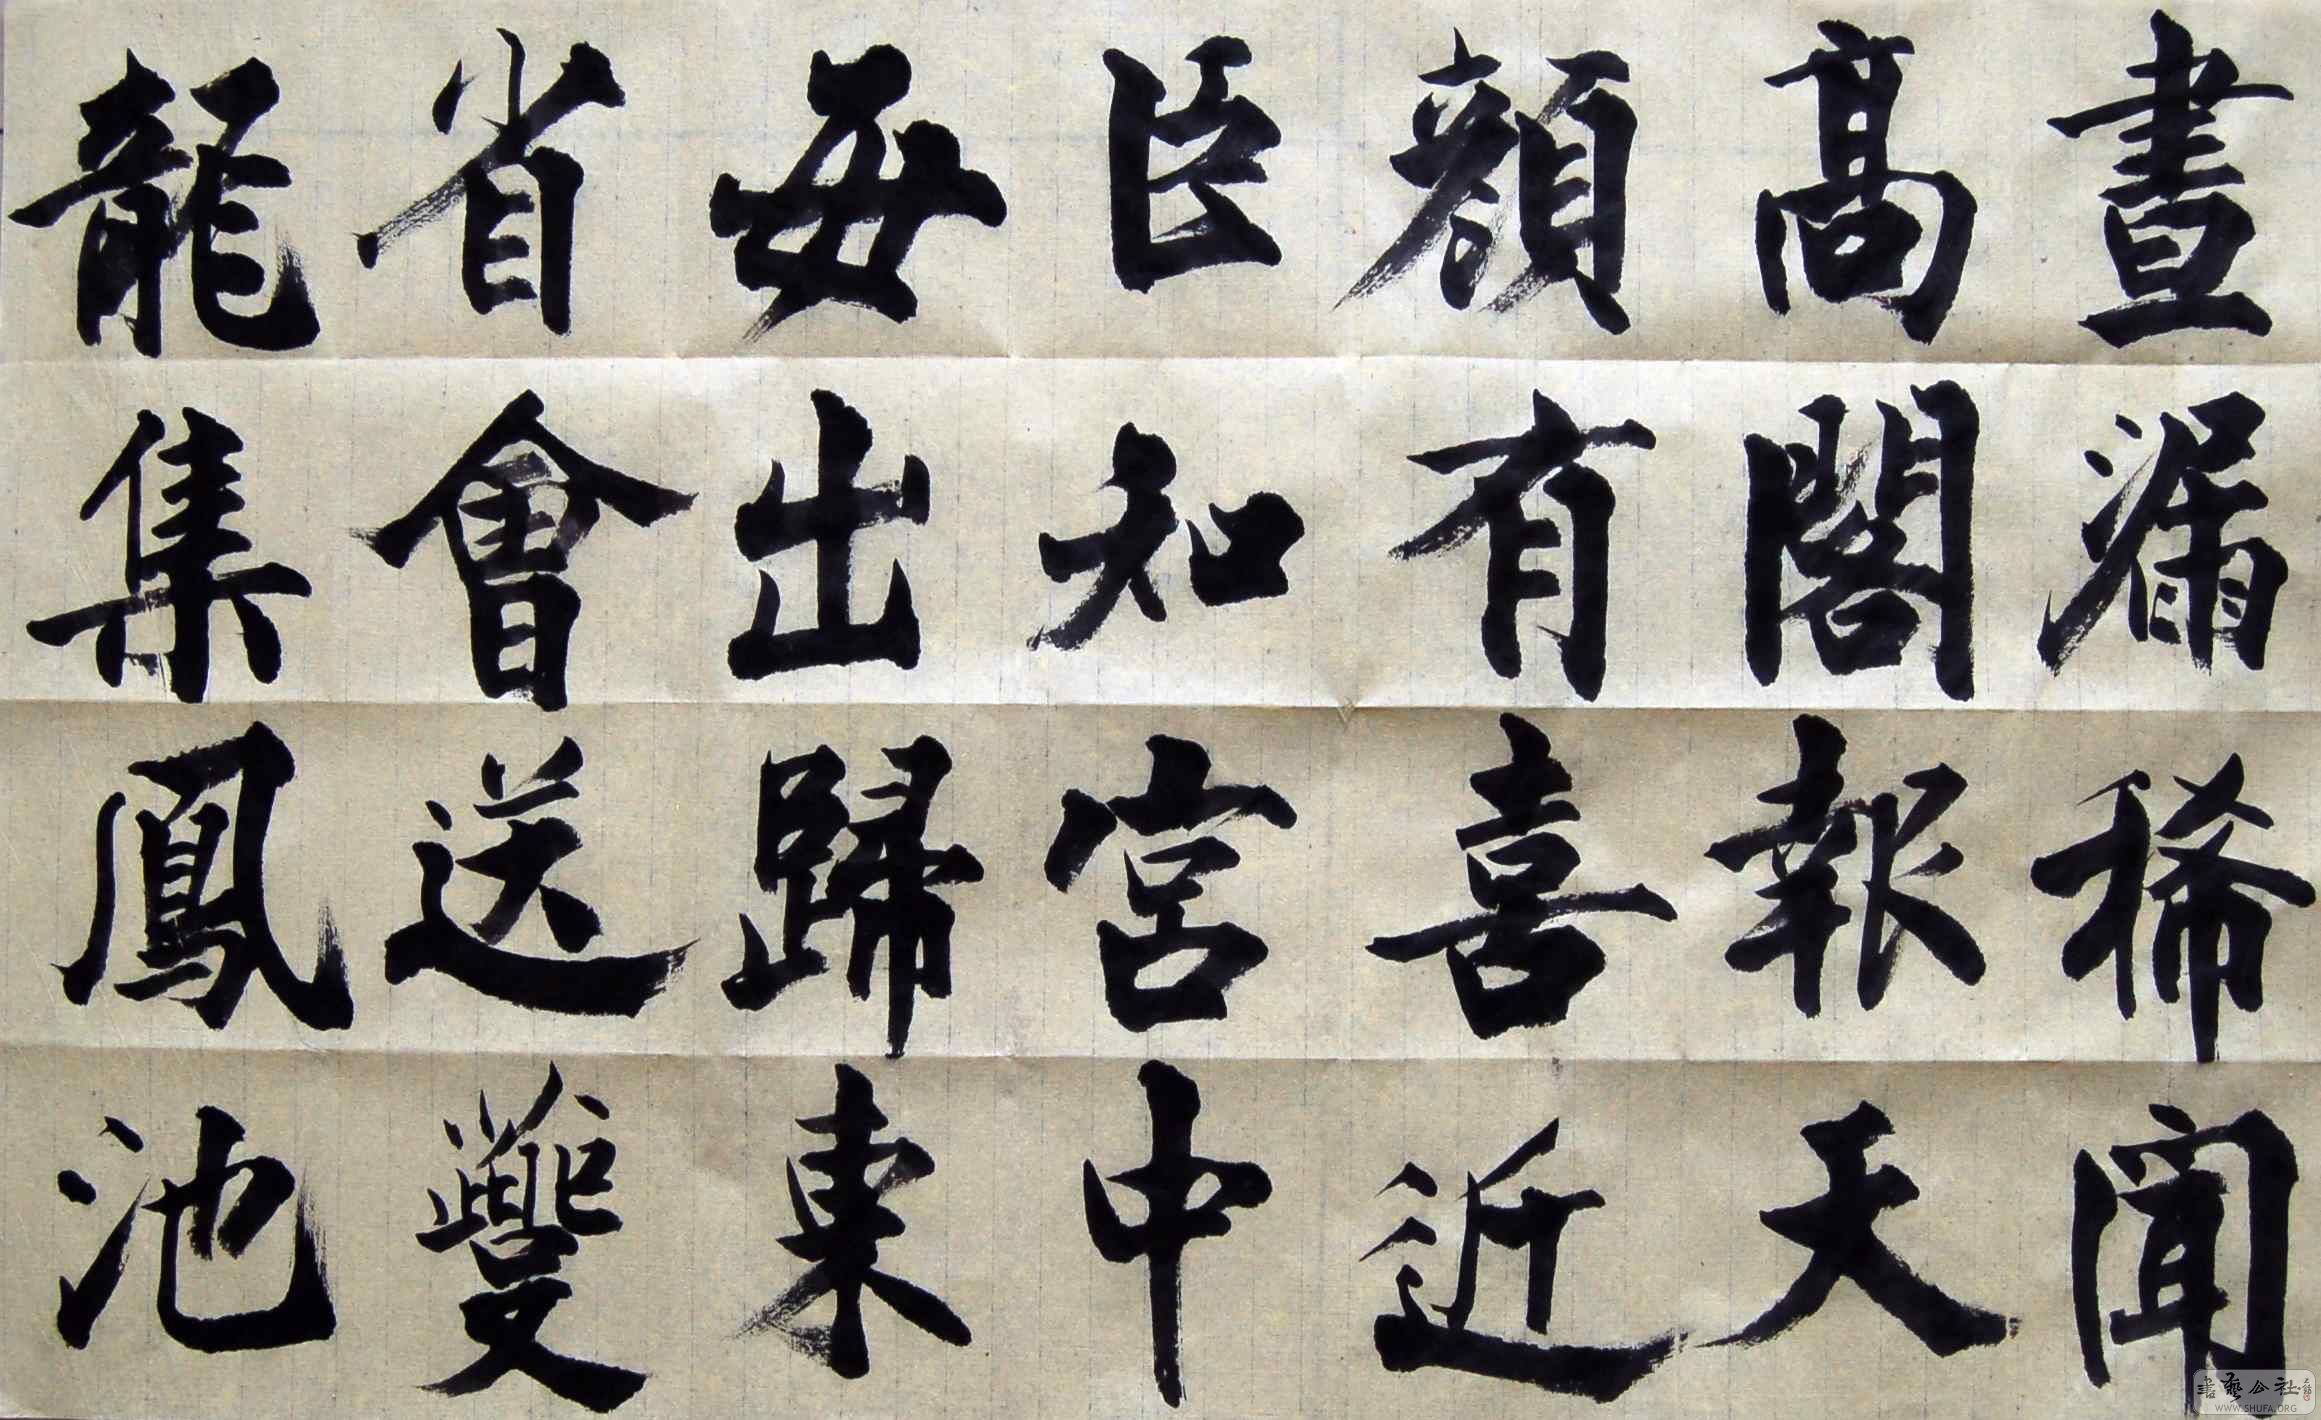 晝漏稀聞
髙閣報天
顏有喜近
臣知宮中
每出歸東
省會送夔
龍集鳳池
書藝公社
WWW.SHUFA.ORG